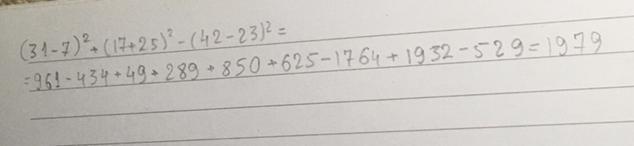 (31-7)²+(17+25)²-(42-23)²=
=961-434+49+289+850+625-1764+1932-529=1979